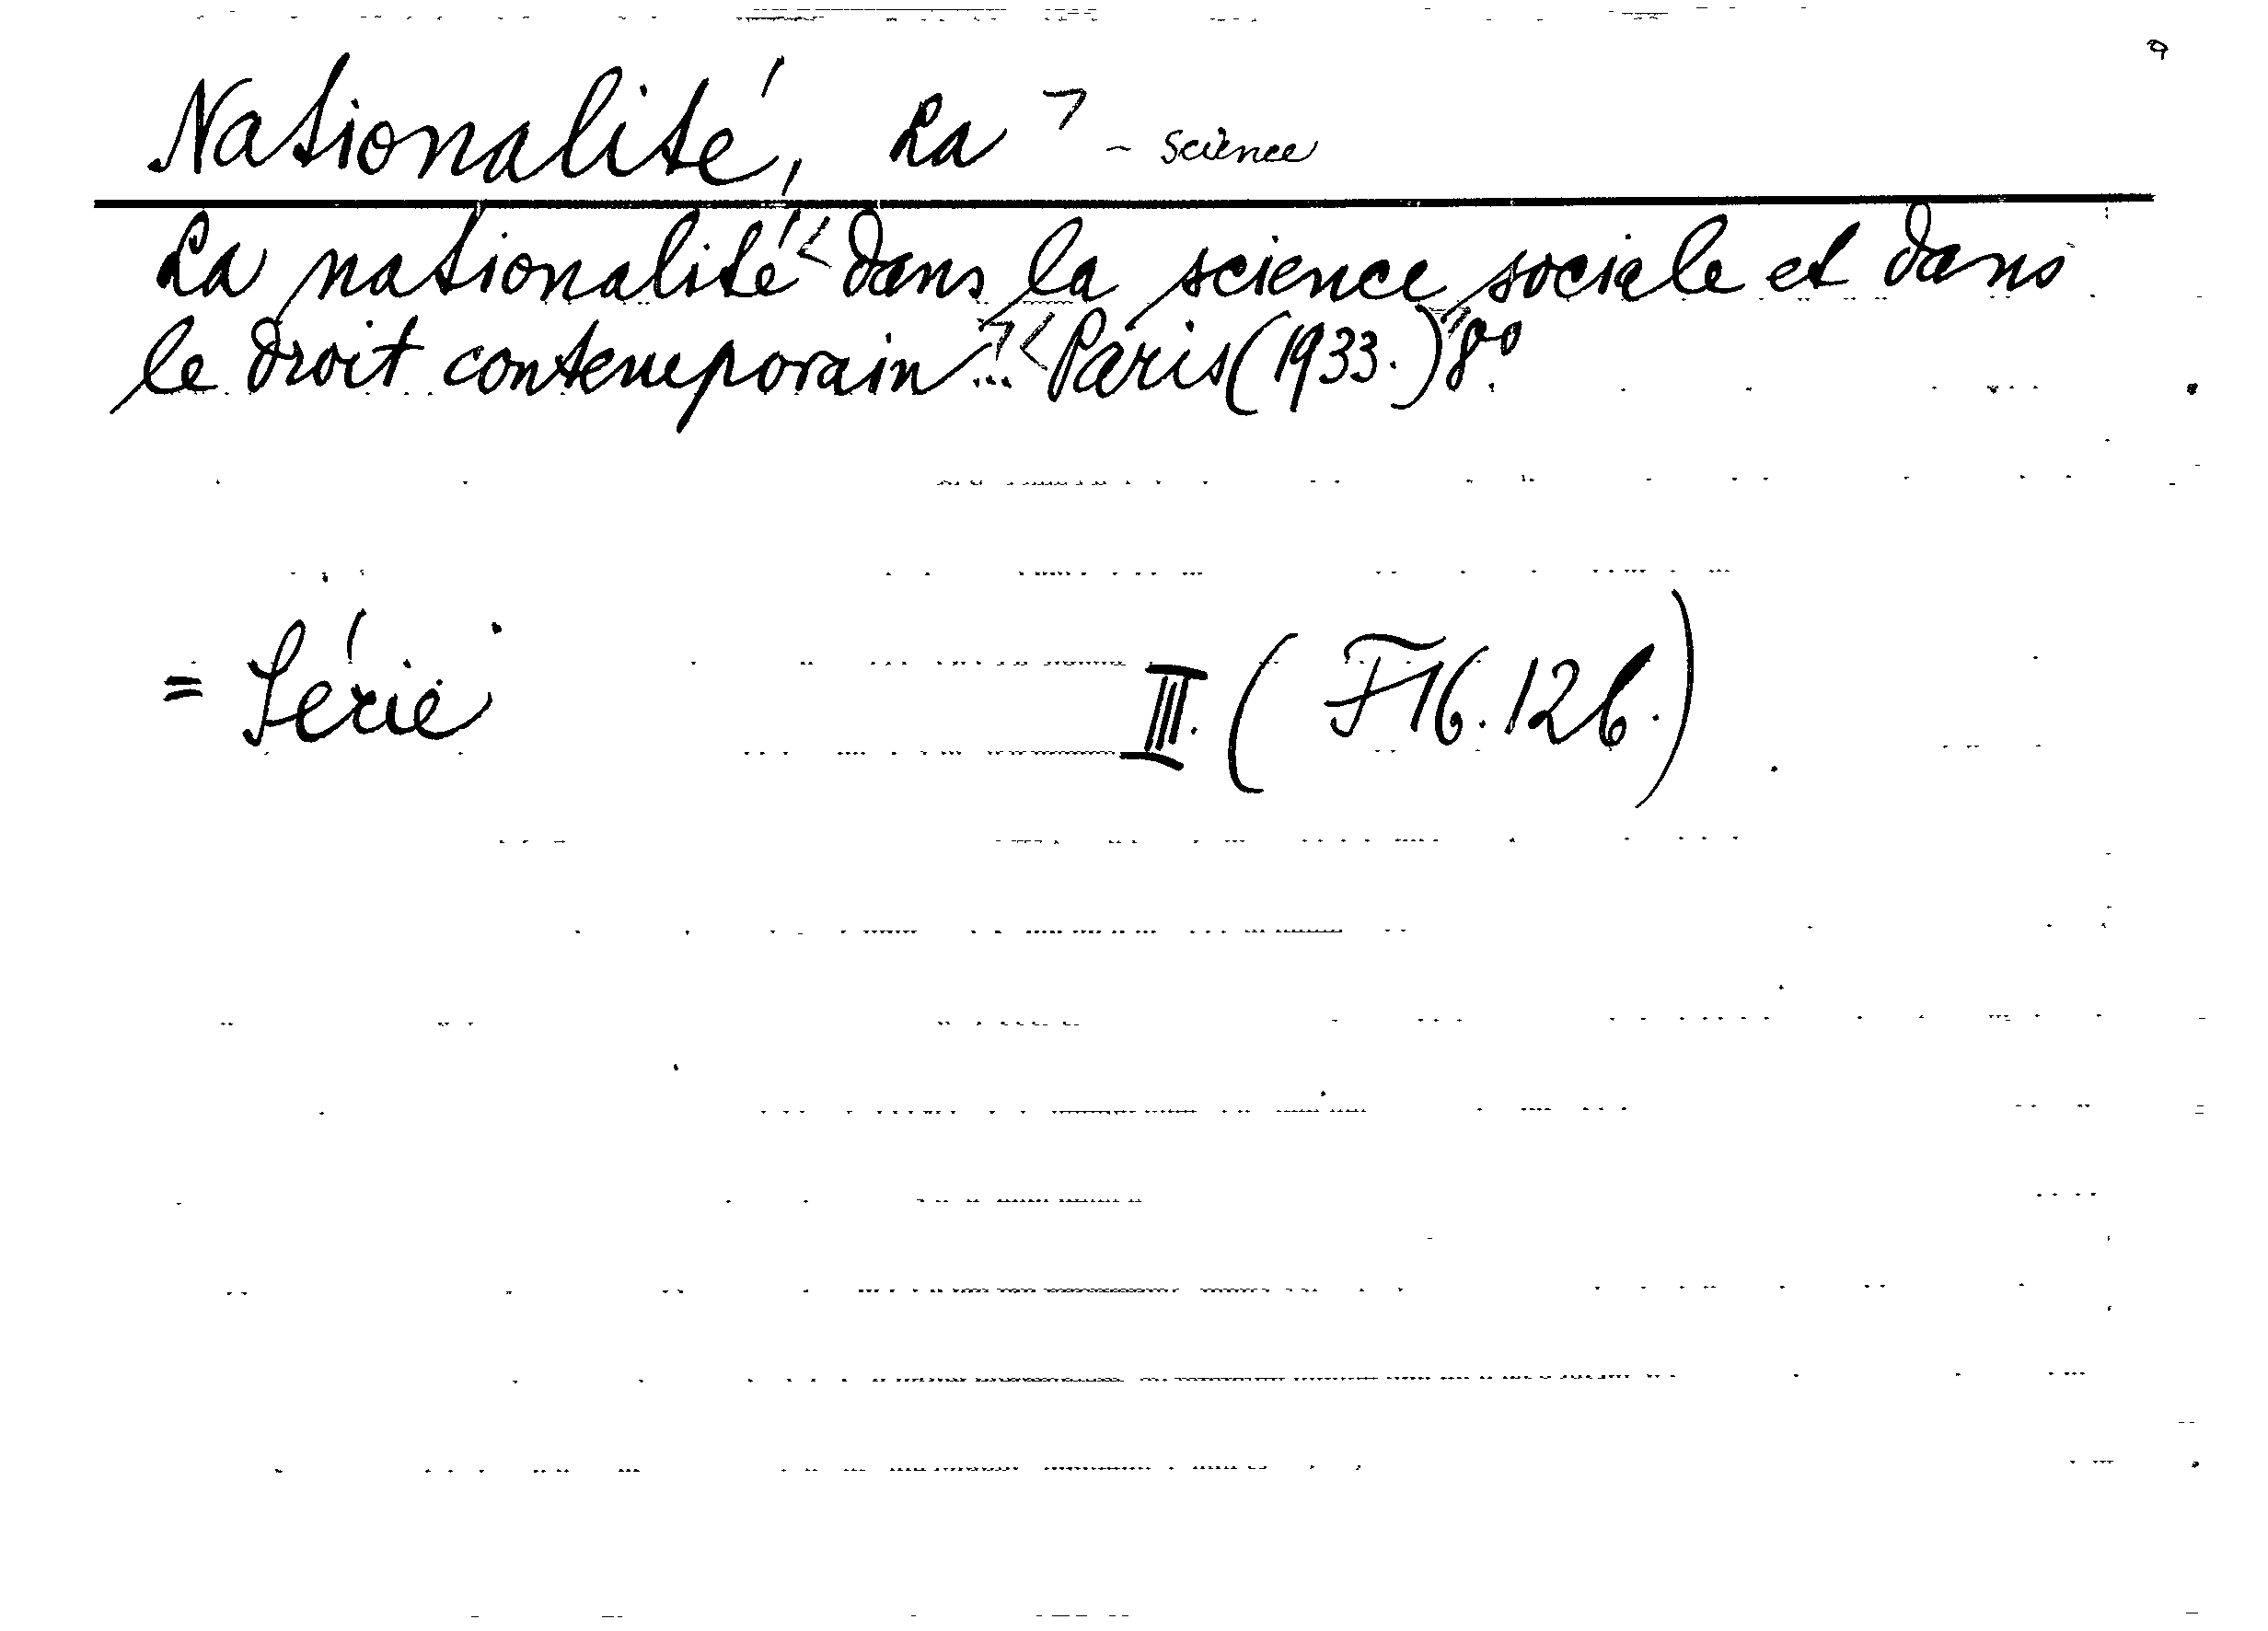 Nationalité, La - science
La nationalité dans la science sociale et dans
le droit contemporain... Paris (1933.) 8º
= Série III. (F16.126.)